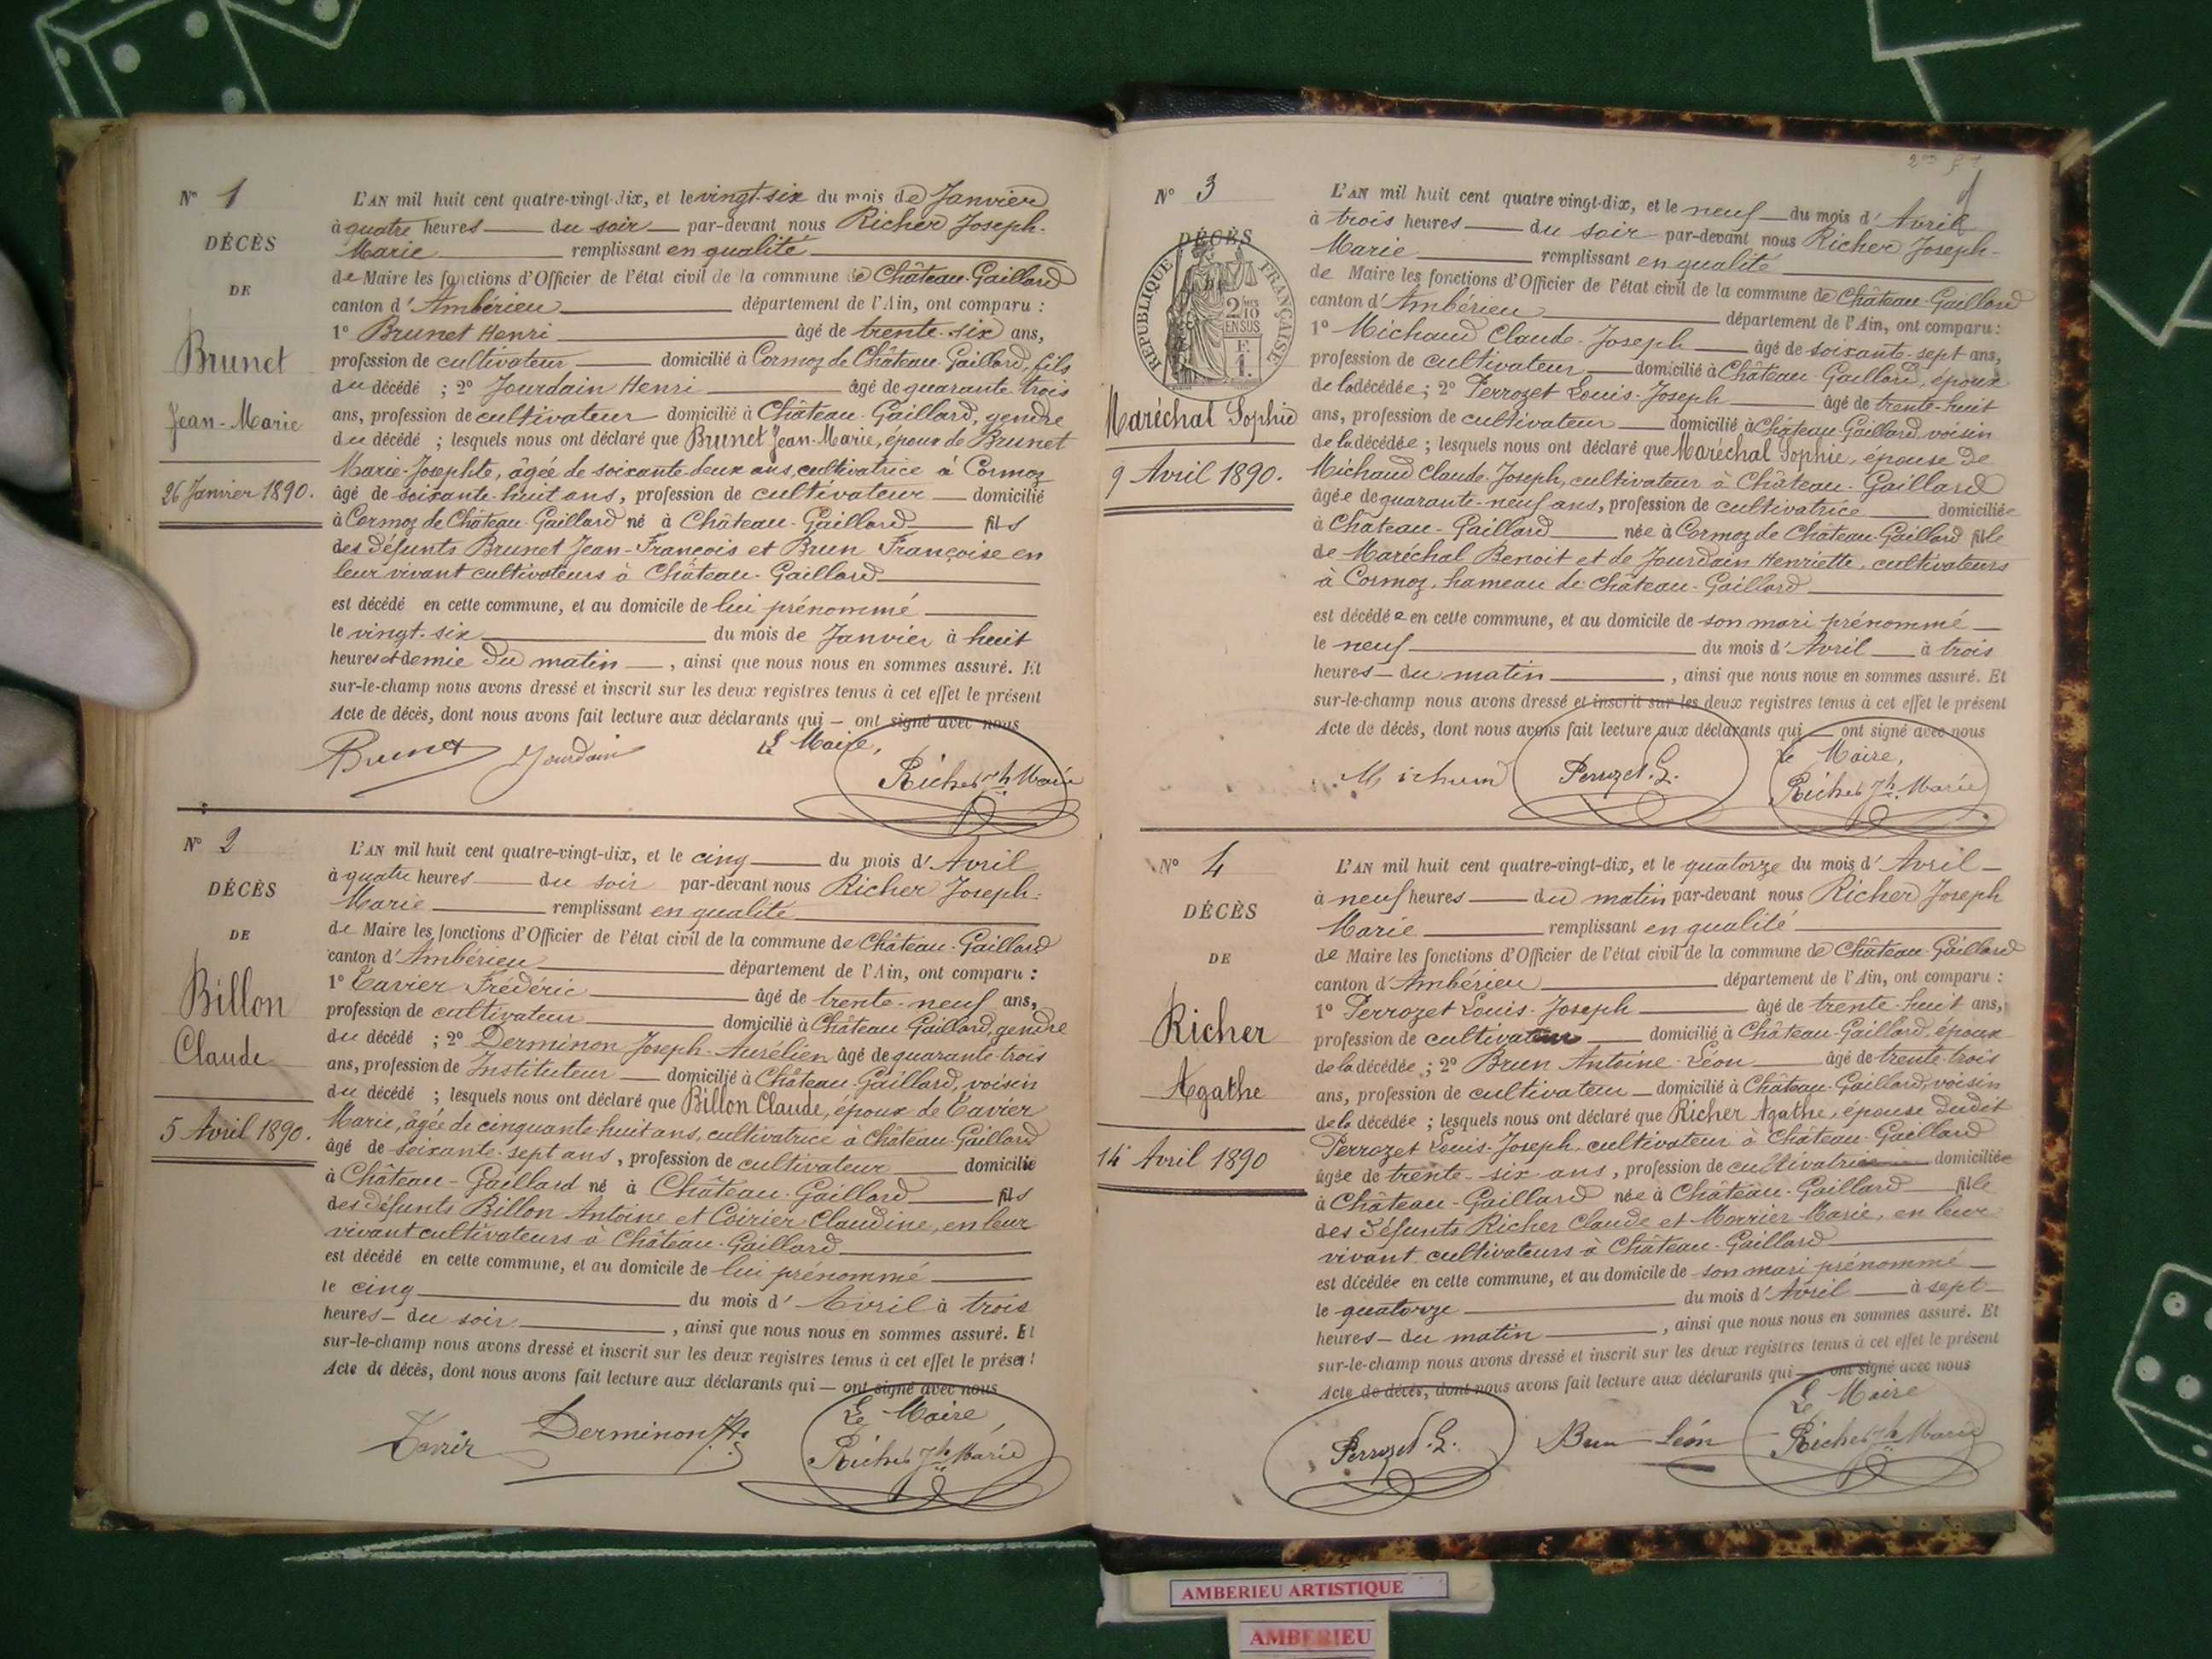 N° 1
DÉCÈS
DE
Brunet
Jean-Marie
26 Janvier 1890.
L'AN mil huit cent quatre-vingt-dix, et le vingt-six du mois de Janvier
à quatre heures du soir par-devant nous Richer Joseph-
Marie remplissant en qualité
de Maire les fonctions d'Officier de l'état civil de la commune de Château-Gaillard
canton d'Ambérieu département de l'Ain, ont comparu :
1° Brunet Henri âgé de trente-six ans,
profession de cultivateur domicilié à Cormoz de Château-Gaillard, fils
du décédé ; 2° Jourdain Henri âgé de quarante-trois
ans, profession de cultivateur domicilié à Château-Gaillard, gendre
du décédé ; lesquels nous ont déclaré que Brunet Jean-Marie, époux de Brunet
Marie-Josephte, âgée de soixante deux ans, cultivatrice à Cormoz
âgé de soixante-huit ans, profession de cultivateur domicilié
à Cormoz de Château-Gaillard né à Château-Gaillard fils
des défunts Brunet Jean-François et Brun Françoise en
leur vivant cultivateurs à Château-Gaillard
est décédé en cette commune, et au domicile de lui prénommé
le vingt-six du mois de Janvier à huit
heures et demie du matin , ainsi que nous nous en sommes assuré. Et
sur-le-champ nous avons dressé et inscrit sur les deux registres tenus à cet effet le présent
Acte de décès, dont nous avons fait lecture aux déclarants qui — ont signé avec nous
Brunet Jourdain Le Maire,
Richer Jh Marie
N° 2
DÉCÈS
DE
Billon
Claude
5 Avril 1890.
L'AN mil huit cent quatre-vingt-dix, et le cinq du mois d'Avril
à quatre heures du soir par-devant nous Richer Joseph-
Marie remplissant en qualité
de Maire les fonctions d'Officier de l'état civil de la commune de Château-Gaillard
canton d'Ambérieu département de l'Ain, ont comparu :
1° Tavier Frédéric âgé de trente-neuf ans,
profession de cultivateur domicilié à Château-Gaillard, gendre
du décédé ; 2° Derminon Joseph-Aurélien âgé de quarante-trois
ans, profession de Instituteur domicilié à Château-Gaillard, voisin
du décédé ; lesquels nous ont déclaré que Billon Claude, époux de Tavier
Marie, âgée de cinquante huit ans, cultivatrice à Château-Gaillard
âgé de soixante-sept ans, profession de cultivateur domicilié
à Château-Gaillard né à Château-Gaillard fils
des défunts Billon Antoine et Coirier Claudine, en leur
vivant cultivateurs à Château-Gaillard
est décédé en cette commune, et au domicile de lui prénommé
le cinq du mois d'Avril à trois
heures du soir , ainsi que nous nous en sommes assuré. Et
sur-le-champ nous avons dressé et inscrit sur les deux registres tenus à cet effet le présent
Acte de décès, dont nous avons fait lecture aux déclarants qui — ont signé avec nous
Tavier Derminon JA. Le Maire
Richer Jh Marie
N° 3
DÉCÈS
RÉPUBLIQUE FRANÇAISE
2/10 EN SUS
F.
1.
Maréchal Sophie
9 Avril 1890.
L'AN mil huit cent quatre vingt-dix, et le neuf du mois d'Avril
à trois heures du soir par-devant nous Richer Joseph-
Marie remplissant en qualité
de Maire les fonctions d'Officier de l'état civil de la commune de Château-Gaillard
canton d'Ambérieu département de l'Ain, ont comparu :
1° Michaud Claude-Joseph âgé de soixante-sept ans,
profession de cultivateur domicilié à Château-Gaillard, époux
de la décédée ; 2° Perrozet Louis-Joseph âgé de trente-huit
ans, profession de cultivateur domicilié à Château-Gaillard, voisin
de la décédée ; lesquels nous ont déclaré que Maréchal Sophie, épouse de
Michaud Claude-Joseph, cultivateur à Château-Gaillard
âgée de quarante-neuf ans, profession de cultivatrice domiciliée
à Château-Gaillard née à Cormoz de Château-Gaillard fille
de Maréchal Benoit et de Jourdain Henriette, cultivateurs
à Cormoz, hameau de Château-Gaillard
est décédée en cette commune, et au domicile de son mari prénommé
le neuf du mois d'Avril à trois
heures du matin , ainsi que nous nous en sommes assuré. Et
sur-le-champ nous avons dressé et inscrit sur les deux registres tenus à cet effet le présent
Acte de décès, dont nous avons fait lecture aux déclarants qui — ont signé avec nous
Michaud Perrozet. L. Le Maire,
Richer Jh. Marie
N° 4
DÉCÈS
DE
Richer
Agathe
14 Avril 1890
L'AN mil huit cent quatre-vingt-dix, et le quatorze du mois d'Avril
à neuf heures du matin par-devant nous Richer Joseph
Marie remplissant en qualité
de Maire les fonctions d'Officier de l'état civil de la commune de Château-Gaillard
canton d'Ambérieu département de l'Ain, ont comparu :
1° Perrozet Louis-Joseph âgé de trente-huit ans,
profession de cultivateur domicilié à Château-Gaillard, époux
de la décédée ; 2° Brun Antoine-Léon âgé de trente-trois
ans, profession de cultivateur domicilié à Château-Gaillard, voisin
de la décédée ; lesquels nous ont déclaré que Richer Agathe, épouse dudit
Perrozet Louis-Joseph, cultivateur à Château-Gaillard
âgée de trente-six ans, profession de cultivatrice domiciliée
à Château-Gaillard née à Château-Gaillard fille
des défunts Richer Claude et Morrier Marie, en leur
vivant cultivateurs à Château-Gaillard
est décédée en cette commune, et au domicile de son mari prénommé
le quatorze du mois d'Avril à sept
heures du matin , ainsi que nous nous en sommes assuré. Et
sur-le-champ nous avons dressé et inscrit sur les deux registres tenus à cet effet le présent
Acte de décès, dont nous avons fait lecture aux déclarants qui — ont signé avec nous
Perrozet. L. Brun Léon Le Maire
Richer Jh Marie
AMBERIEU ARTISTIQUE
AMBERIEU